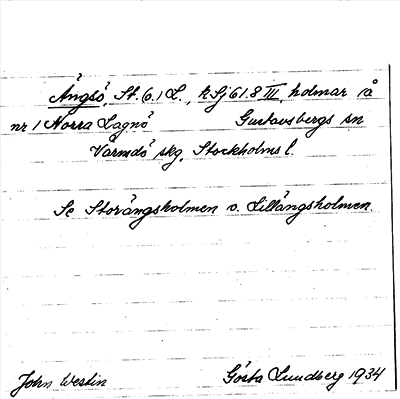 Ängsö, St. (o.) L., k Sj 61.8 III, holmar på
nr 1 Norra Lagnö Gustavsbergs sn
Värmdö skg, Stockholms l.
Se Storängsholmen o. Lillängsholmen.
John Westin Gösta Lundberg 1934